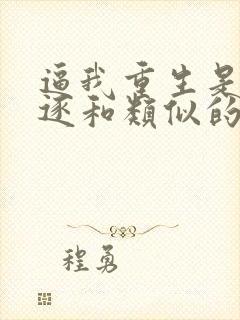 逼我重生是
逐和类似的
程勇